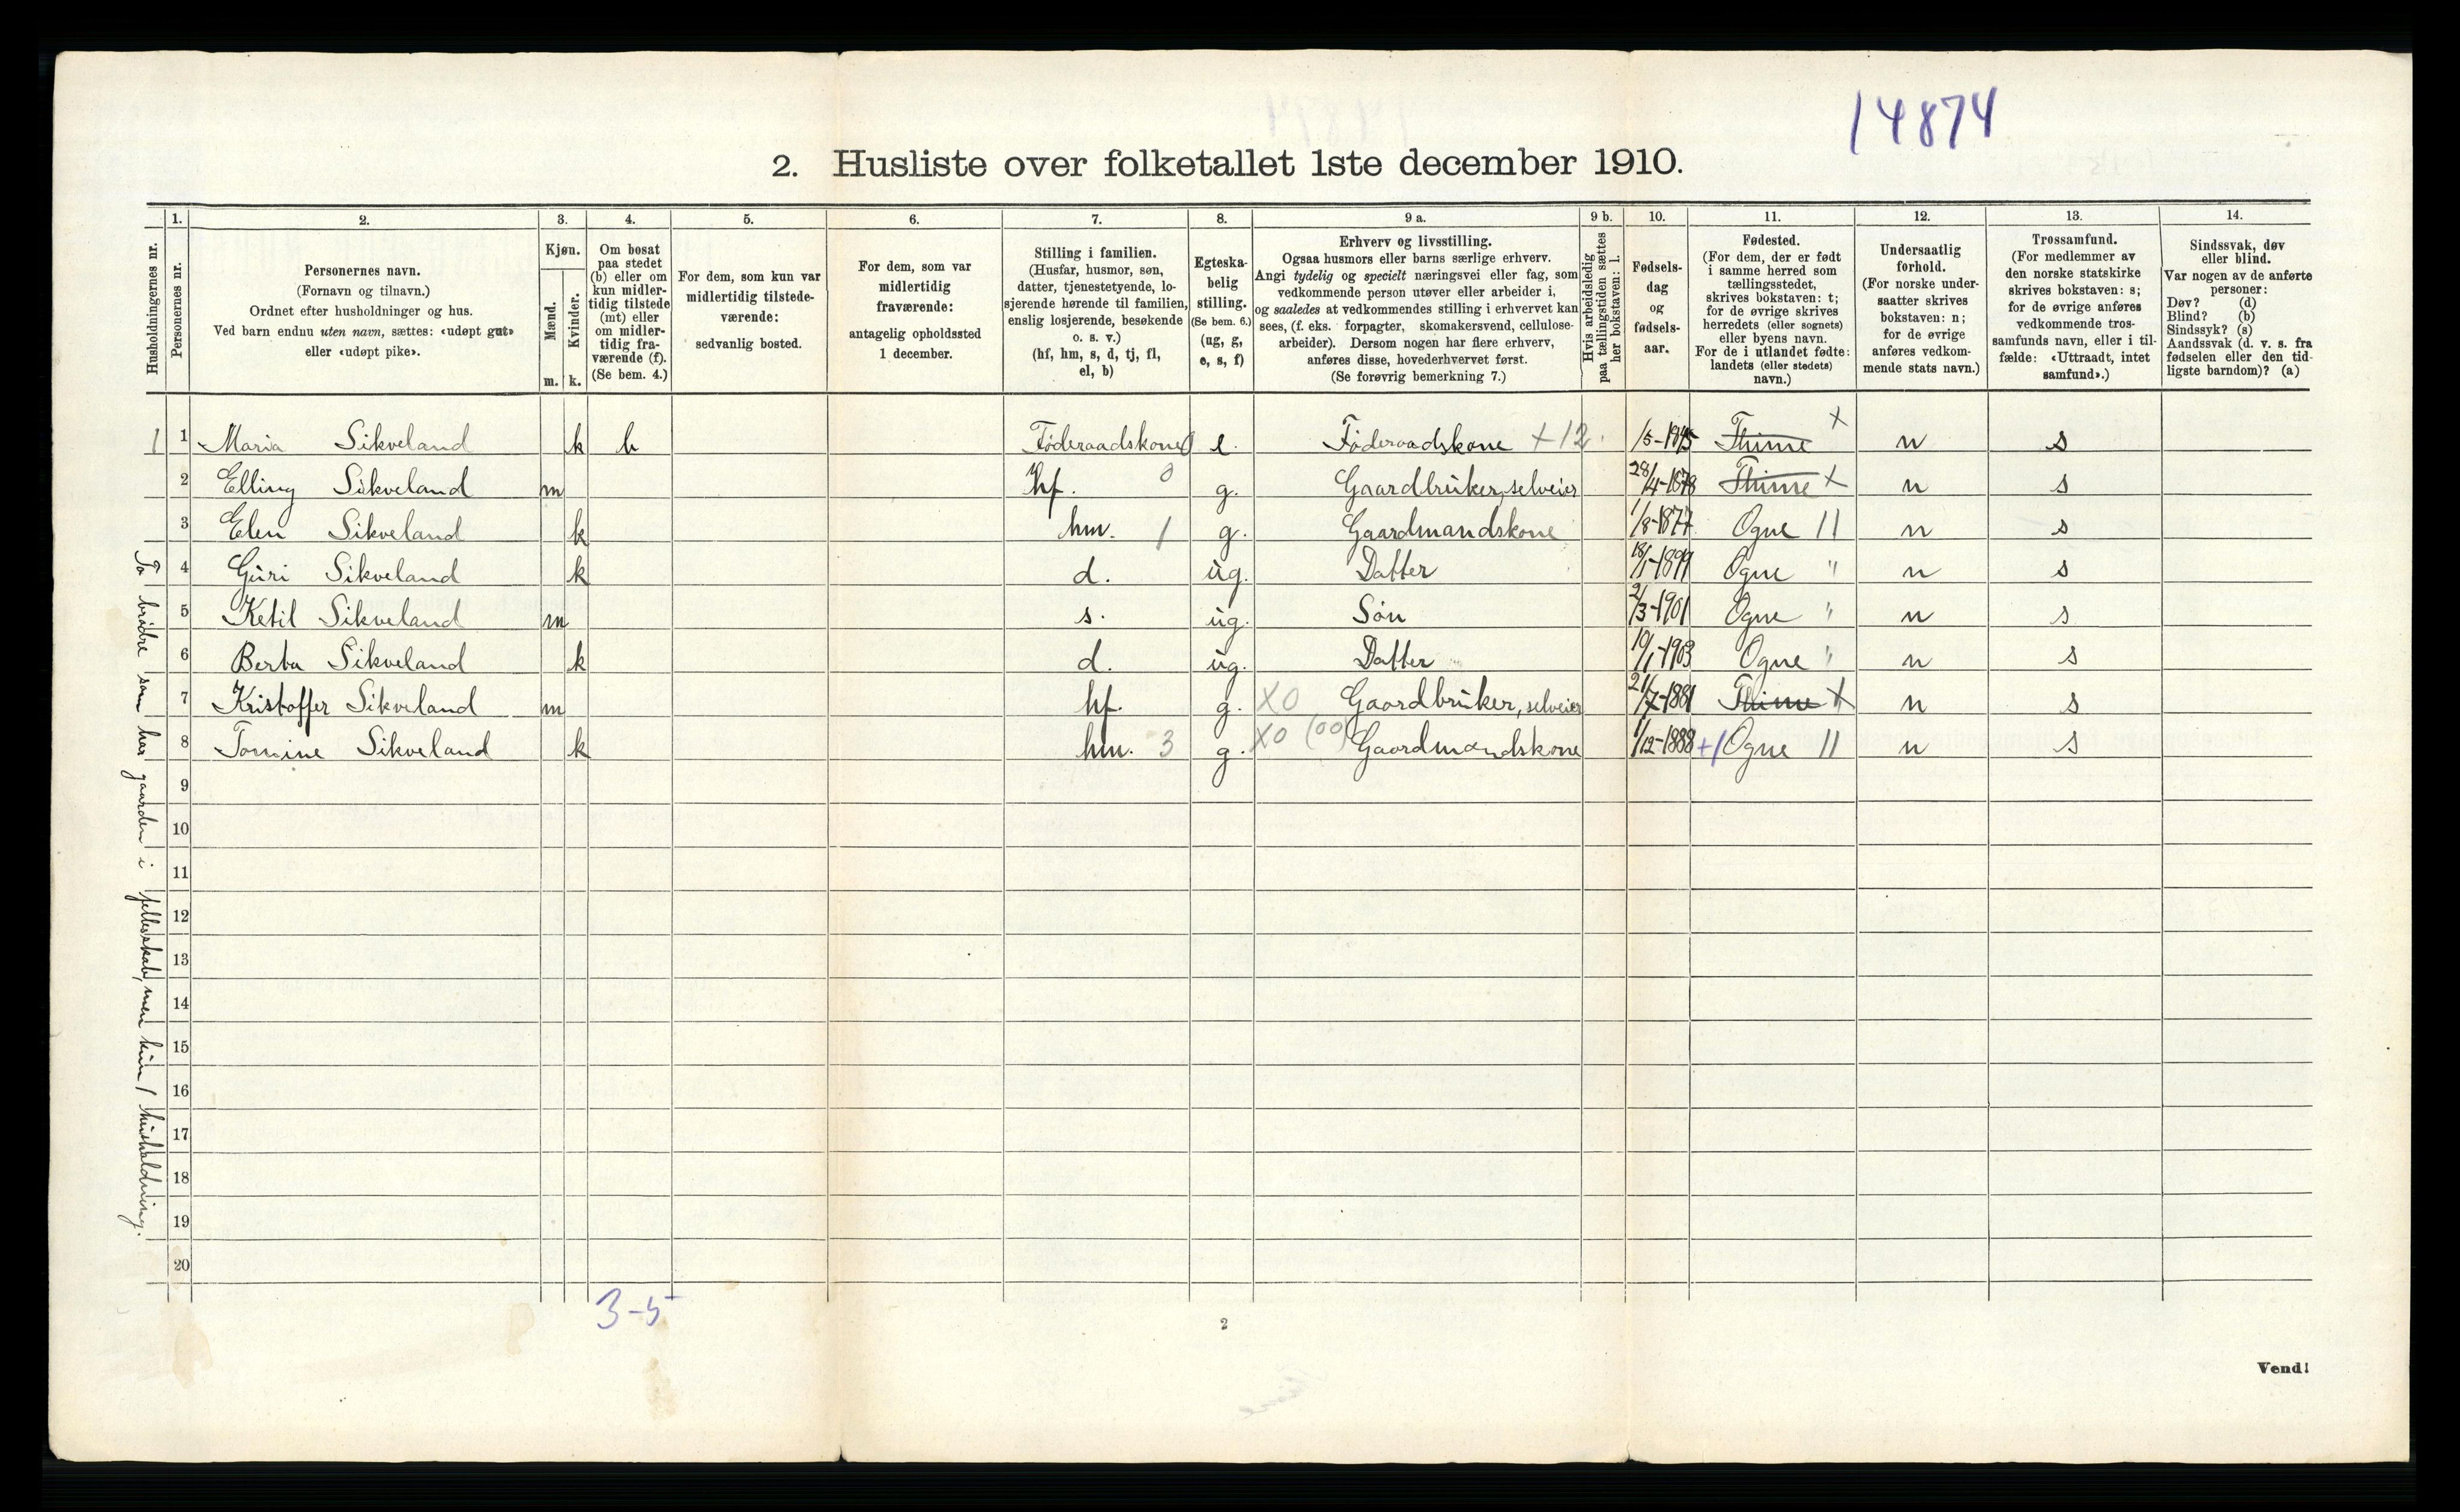 14874
2. Husliste over folketallet 1ste december 1910.
Husholdningernes nr.
1.
Personernes nr.
2.
Personernes navn.
(Fornavn og tilnavn.)
Ordnet efter husholdninger og hus.
Ved barn endnu uten navn, sættes: «udøpt gut»
eller «udøpt pike».
3.
Kjøn.
Mænd.
m.
Kvinder.
k.
4.
Om bosat
paa stedet
(b) eller om
kun midler-
tidig tilstede
(mt) eller
om midler-
tidig fra-
værende (f).
(Se bem. 4.)
5.
For dem, som kun var
midlertidig tilstede-
værende:
sedvanlig bosted.
6.
For dem, som var
midlertidig
fraværende:
antagelig opholdssted
1 december.
7.
Stilling i familien.
(Husfar, husmor, søn,
datter, tjenestetyende, lo-
sjerende hørende til familien,
enslig losjerende, besøkende
o. s. v.)
(hf, hm, s, d, tj, fl,
el, b)
8.
Egteska-
belig
stilling.
(Se bem. 6.)
(ug, g,
e, s, f)
9 a.
Erhverv og livsstilling.
Ogsaa husmors eller barns særlige erhverv.
Angi tydelig og specielt næringsvei eller fag, som
vedkommende person utøver eller arbeider i,
og saaledes at vedkommendes stilling i erhvervet kan
sees, (f. eks. forpagter, skomakersvend, cellulose-
arbeider). Dersom nogen har flere erhverv,
anføres disse, hovederhvervet først.
(Se forøvrig bemerkning 7.)
9 b.
Hvis arbeidsledig
paa tællingstiden sættes
her bokstaven: l.
10.
Fødsels-
dag
og
fødsels-
aar.
11.
Fødested.
(For dem, der er født
i samme herred som
tællingsstedet,
skrives bokstaven: t;
for de øvrige skrives
herredets (eller sognets)
eller byens navn.
For de i utlandet fødte:
landets (eller stedets)
navn.)
12.
Undersaatlig
forhold.
(For norske under-
saatter skrives
bokstaven: n;
for de øvrige
anføres vedkom-
mende stats navn.)
13.
Trossamfund.
(For medlemmer av
den norske statskirke
skrives bokstaven: s;
for de øvrige anføres
vedkommende tros-
samfunds navn, eller i til-
fælde: «Uttraadt, intet
samfund».)
14.
Sindssvak, døv
eller blind.
Var nogen av de anførte
personer:
Døv? (d)
Blind? (b)
Sindssyk? (s)
Aandssvak (d. v. s. fra
fødselen eller den tid-
ligste barndom)? (a)
1 1 Maria Sikveland k b Føderaadskone 0 e. Føderaadskone +12. 1/5-1845 Thime x n s
2 Elling Sikveland m hf. 0 g. Gaardbruker, selveier 28/4-1878 Thime x n s
3 Elen Sikveland k hm. 1 g. Gaardmandskone 1/8-1877 Ogne 11 n s
4 Guri Sikveland k d. ug. Datter 18/1-1899 Ogne " n s
5 Ketil Sikveland m s. ug. Søn 2/3-1901 Ogne " n s
6 Berta Sikveland k d. ug. Datter 10/1-1903 Ogne " n s
7 Kristoffer Sikveland m hf. g. X0 Gaardbruker, selveier 21/7-1881 Thime x n s
8 Tomine Sikveland k hm. 3 g. X0 (00) Gaardmandskone 1/12-1888 +1 Ogne 11 n s
9
10
11
12
13
14
15
16
17
18
19
20
To brødre som har gaarden i fellesskab, men kun 1 husholdning.
3-5
2
Vend!